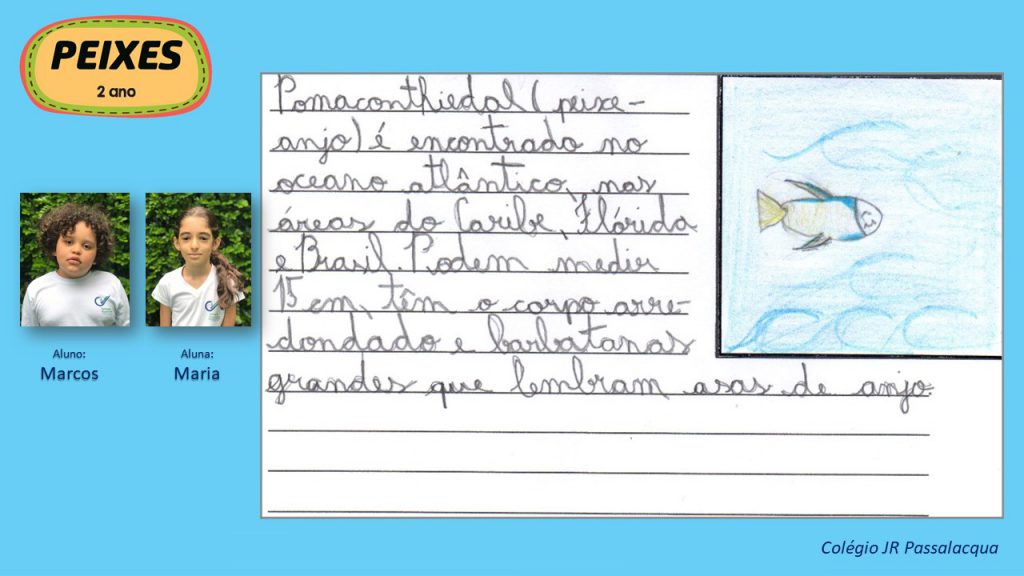 PEIXES
2 ano
Pomaconthiedal (peixe-
anjo) é encontrado no
oceano atlântico, nas
áreas do Caribe, Flórida
e Brasil. Podem medir
15 cm, têm o corpo arre-
dondado e barbatanas
grandes que lembram asas de anjo.
Aluno:
Marcos
Aluna:
Maria
Colégio JR Passalacqua